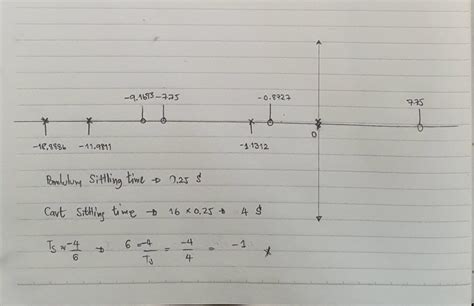 -9.1653 -7.75 -0.8727 7.75
-18.8836 -11.9811 -1.1312 0
Pendulum Sittling time → 0.25 S
Cart Sittling time → 16 × 0.25 → 4 S
Ts = -4/6 → 6 = -4/Ts = -4/4 = -1